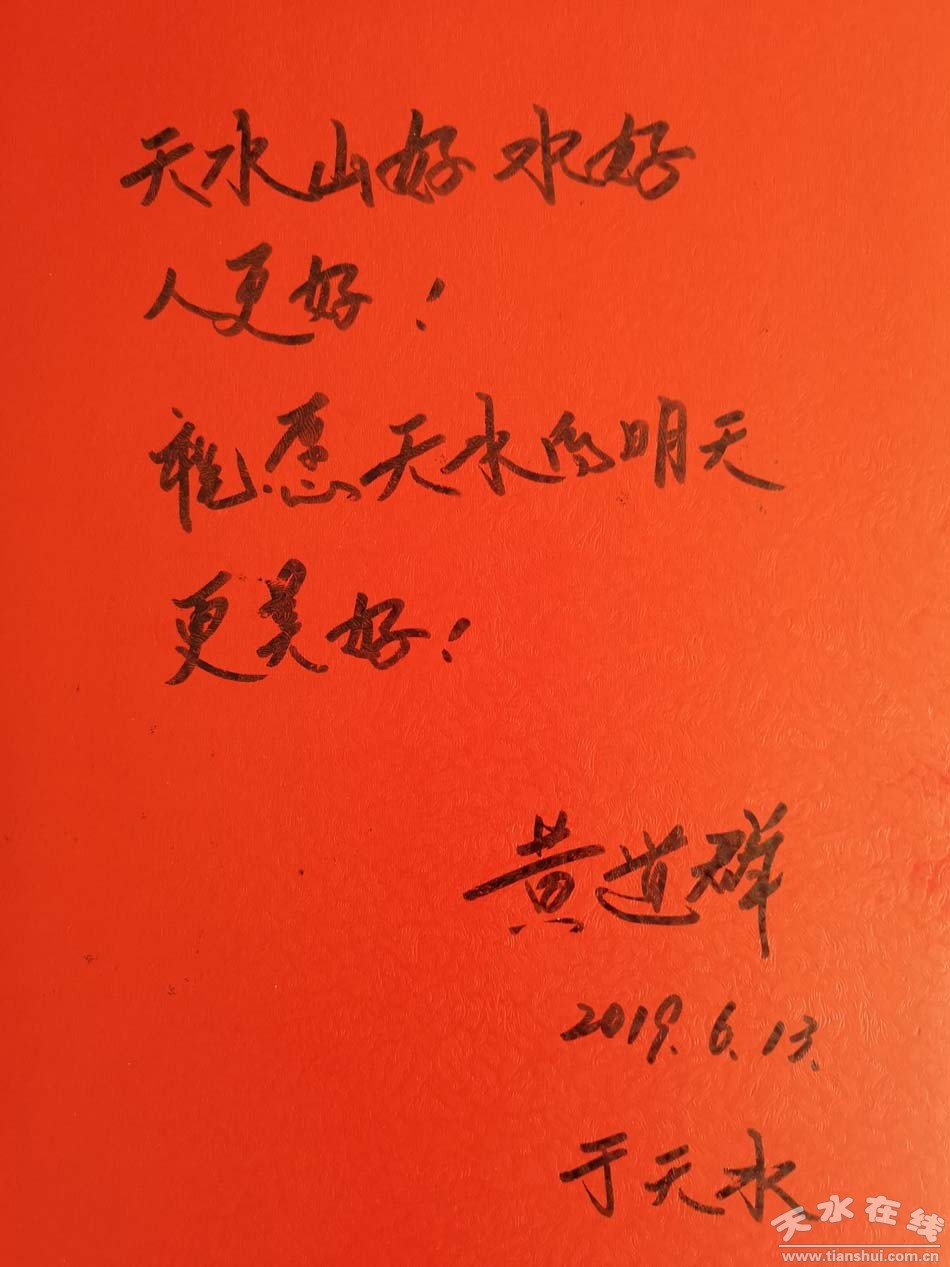 天水山好水好
人更好！
祝愿天水的明天
更美好！
黄道群
2019.6.13.
于天水
天水在线
www.tianshui.com.cn